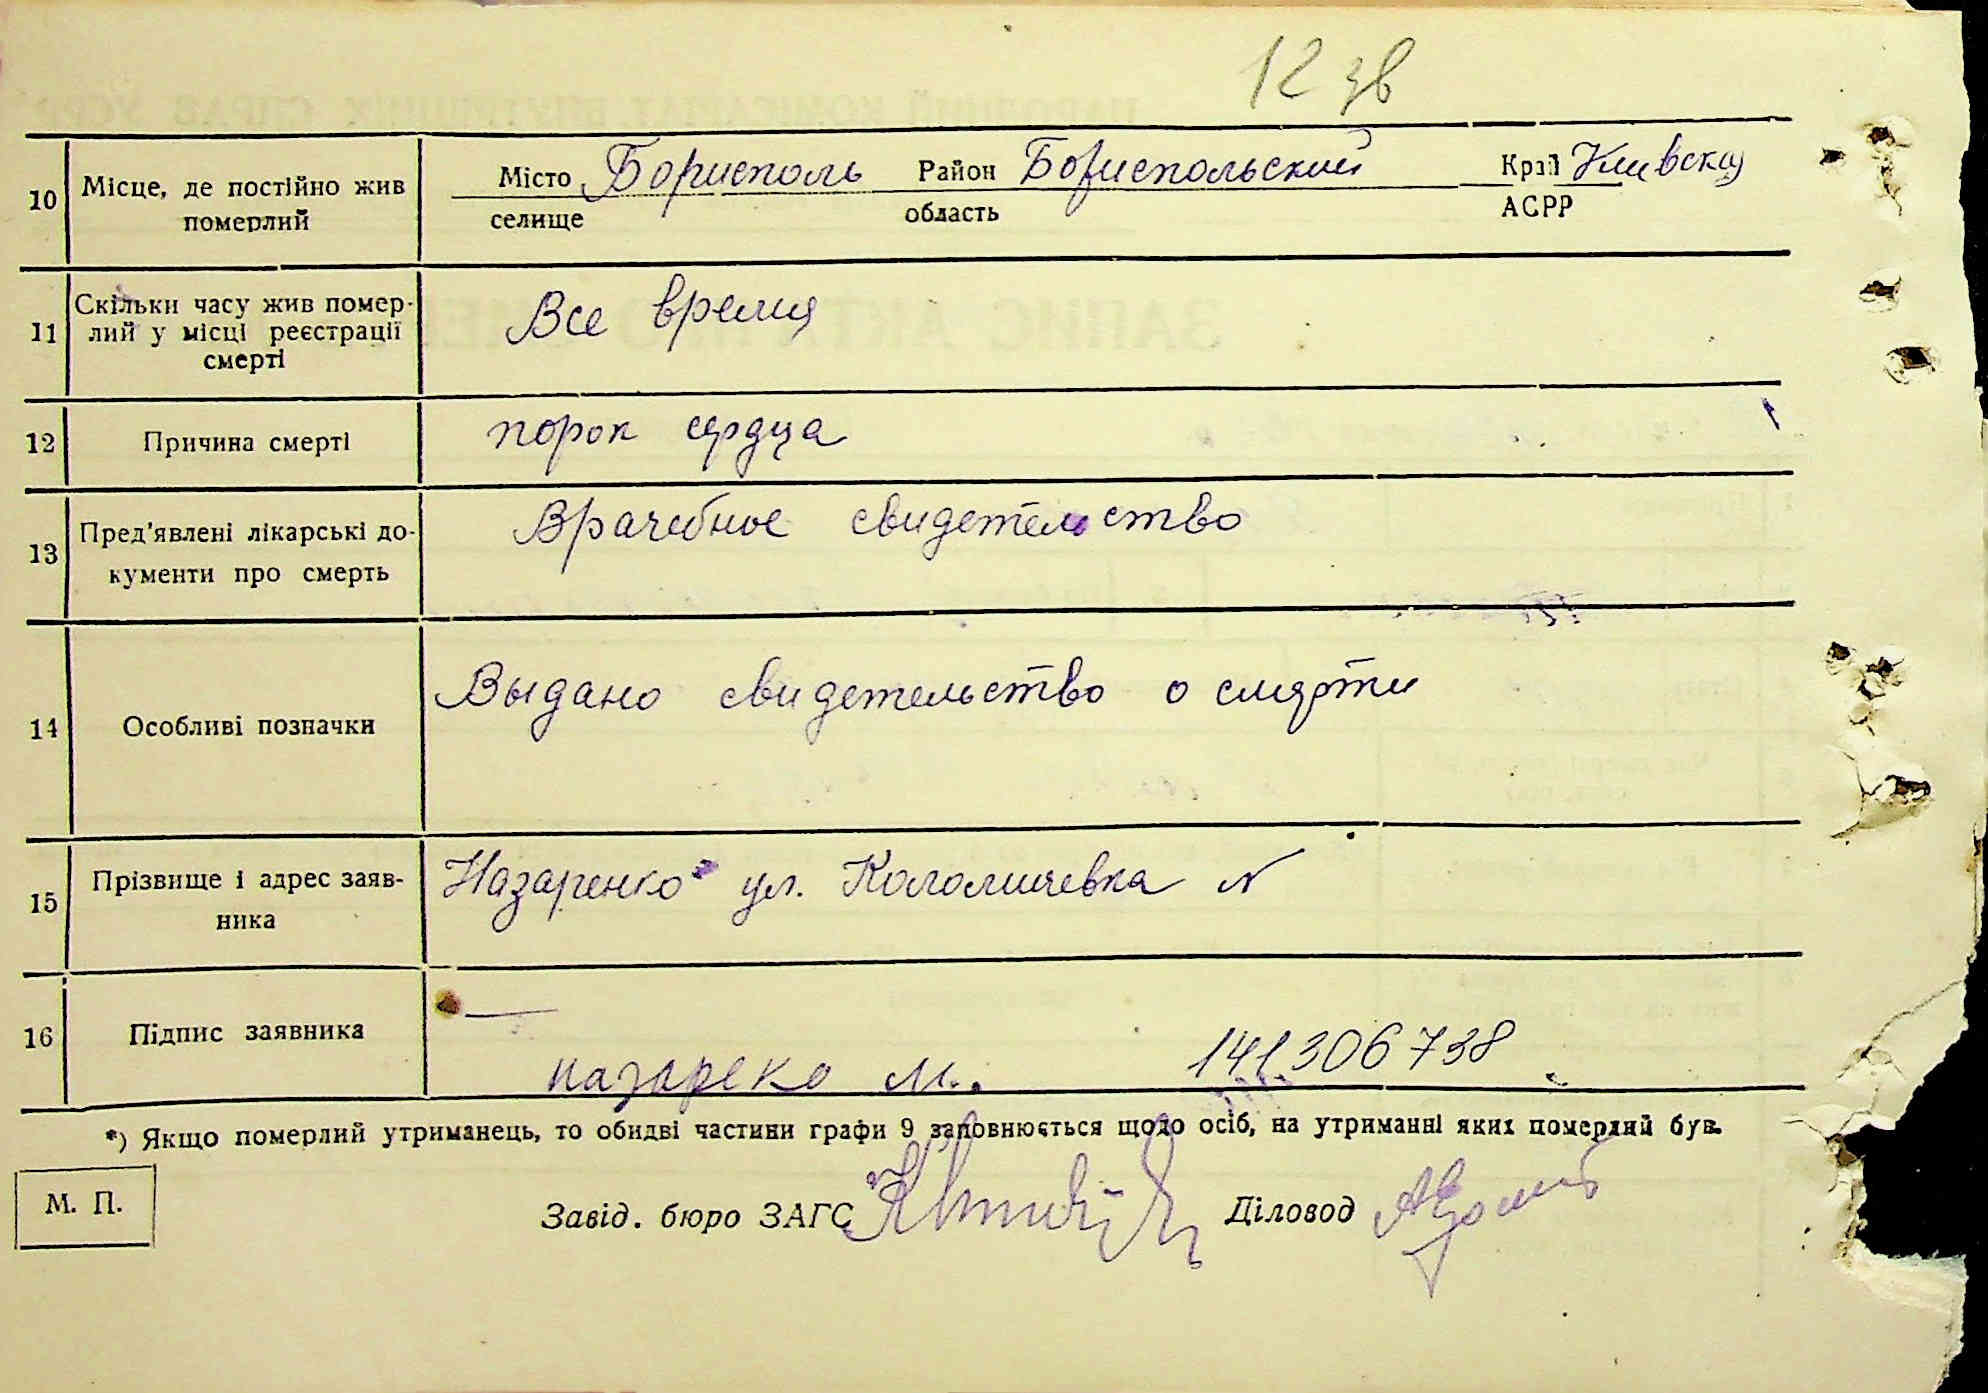 12 зв
10 Місце, де постійно жив померлий
Місто Борисполь Район Бориспольский Край Киевская
селище область АСРР
11 Скільки часу жив помер-
лий у місці реєстрації
смерті
Все время
12 Причина смерті порок сердца
13 Пред'явлені лікарські до-
кументи про смерть
Врачебное свидетельство
14 Особливі позначки Выдано свидетельство о смерти
15 Прізвище і адрес заяв-
ника
Назаренко ул. Коломиевка №
16 Підпис заявника
назареко м. 141306738
*) Якщо померлий утриманець, то обидві частини графи 9 заповнюється щодо осіб, на утриманні яких померлий був.
М. П. Завід. бюро ЗАГС Діловод